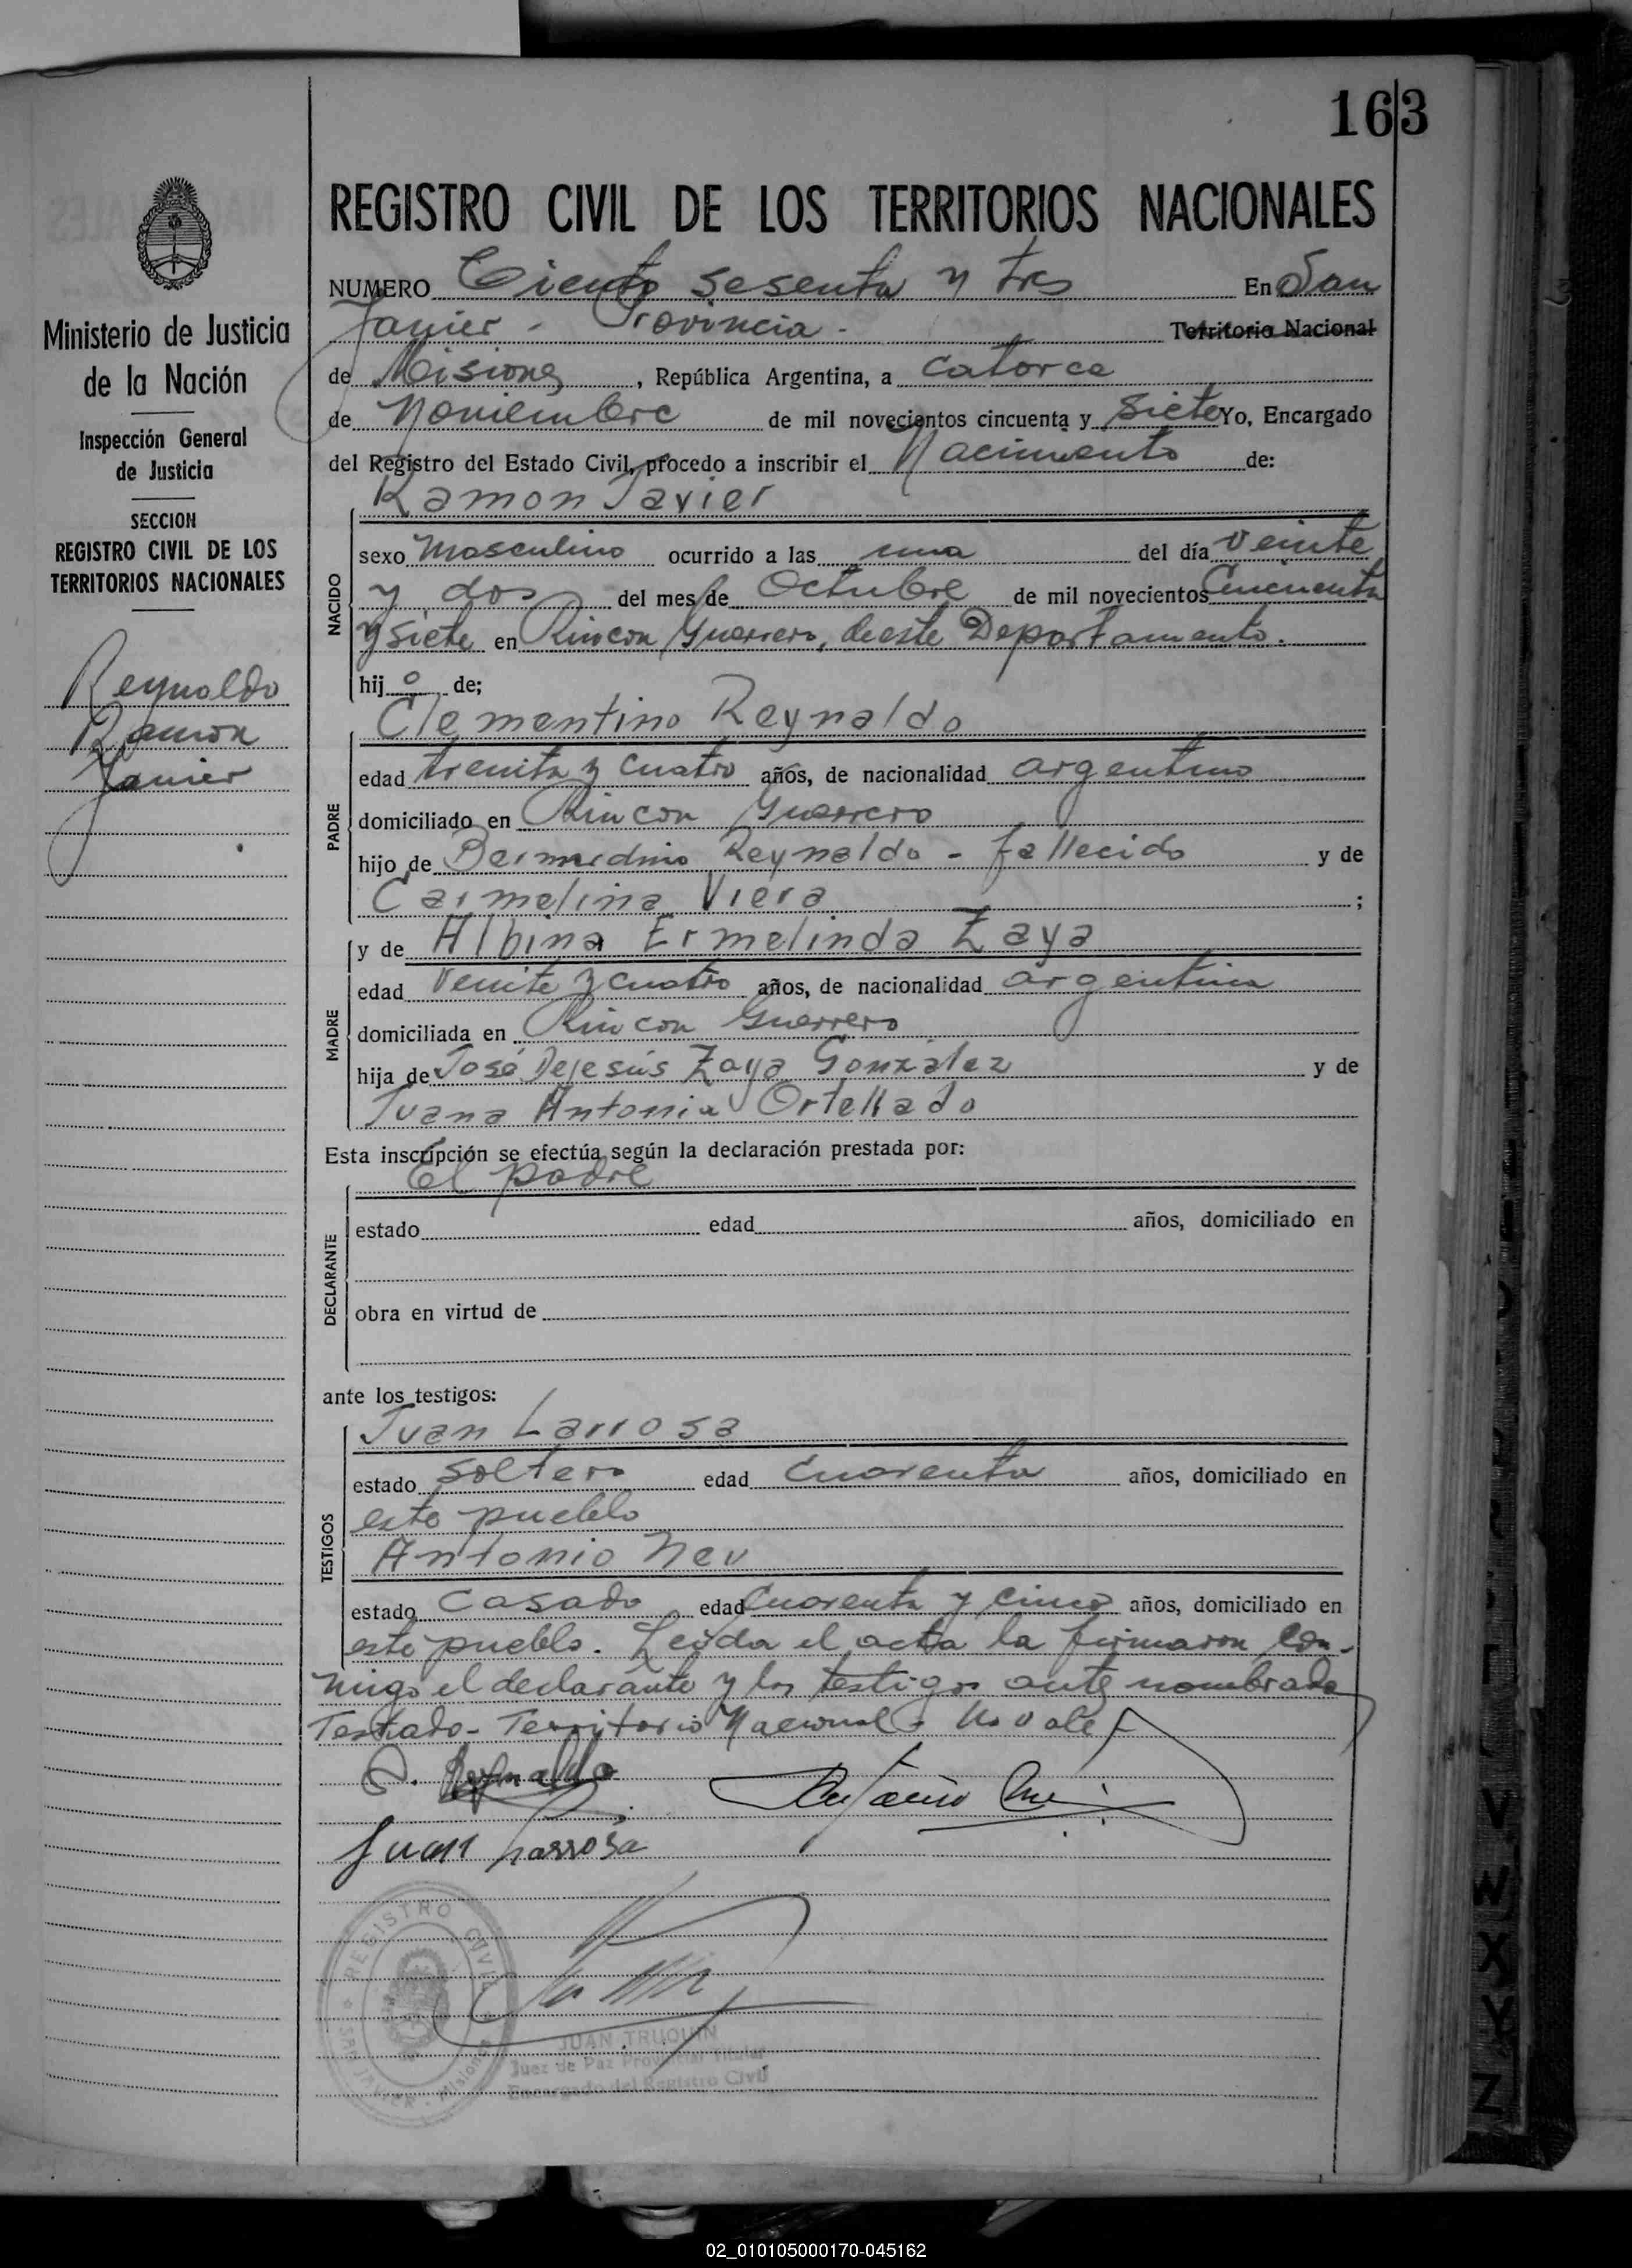 163
REGISTRO CIVIL DE LOS TERRITORIOS NACIONALES
Ministerio de Justicia
de la Nación
Inspección General
de Justicia
SECCION
REGISTRO CIVIL DE LOS
TERRITORIOS NACIONALES
Reynaldo
Ramon
Javier
NUMERO Ciento sesenta y tres En San
Javier - Provincia - Territorio Nacional
de Misiones, República Argentina, a catorce
de Noviembre de mil novecientos cincuenta y siete Yo, Encargado
del Registro del Estado Civil, procedo a inscribir el Nacimiento de:
Ramon Javier
NACIDO
sexo Masculino ocurrido a las una del día veinte
y dos del mes de Octubre de mil novecientos Cincuenta
y siete en Rincon Guerrero, de este Departamento.
hij o de;
Clementino Reynaldo
PADRE
edad treinta y cuatro años, de nacionalidad argentino
domiciliado en Rincon Guerrero
hijo de Bernardino Reynaldo - fallecido y de
Carmelina Viera ;
y de Albina Ermelinda Zaya
MADRE
edad veinte y cuatro años, de nacionalidad argentina
domiciliada en Rincon Guerrero
hija de José Dejesús Zaya González y de
Juana Antonia Ortellado
Esta inscripción se efectúa según la declaración prestada por:
El padre
DECLARANTE
estado edad años, domiciliado en
obra en virtud de
ante los testigos:
Juan Larrosa
TESTIGOS
estado soltero edad Cuarenta años, domiciliado en
este pueblo
Antonio Neu
estado Casado edad Cuarenta y cinco años, domiciliado en
este pueblo. Leída el acta la firmaron con-
migo el declarante y los testigos ante nombrado
Testado - Territorio Nacional - No vale
C. Reynaldo
Antonio Neu
Juan Larrosa
REGISTRO CIVIL
SAN JAVIER - Misiones
JUAN TRUQUIN
Juez de Paz Provincial Titular
Encargado del Registro Civil
V
W
X
Y
Z
02_010105000170-045162